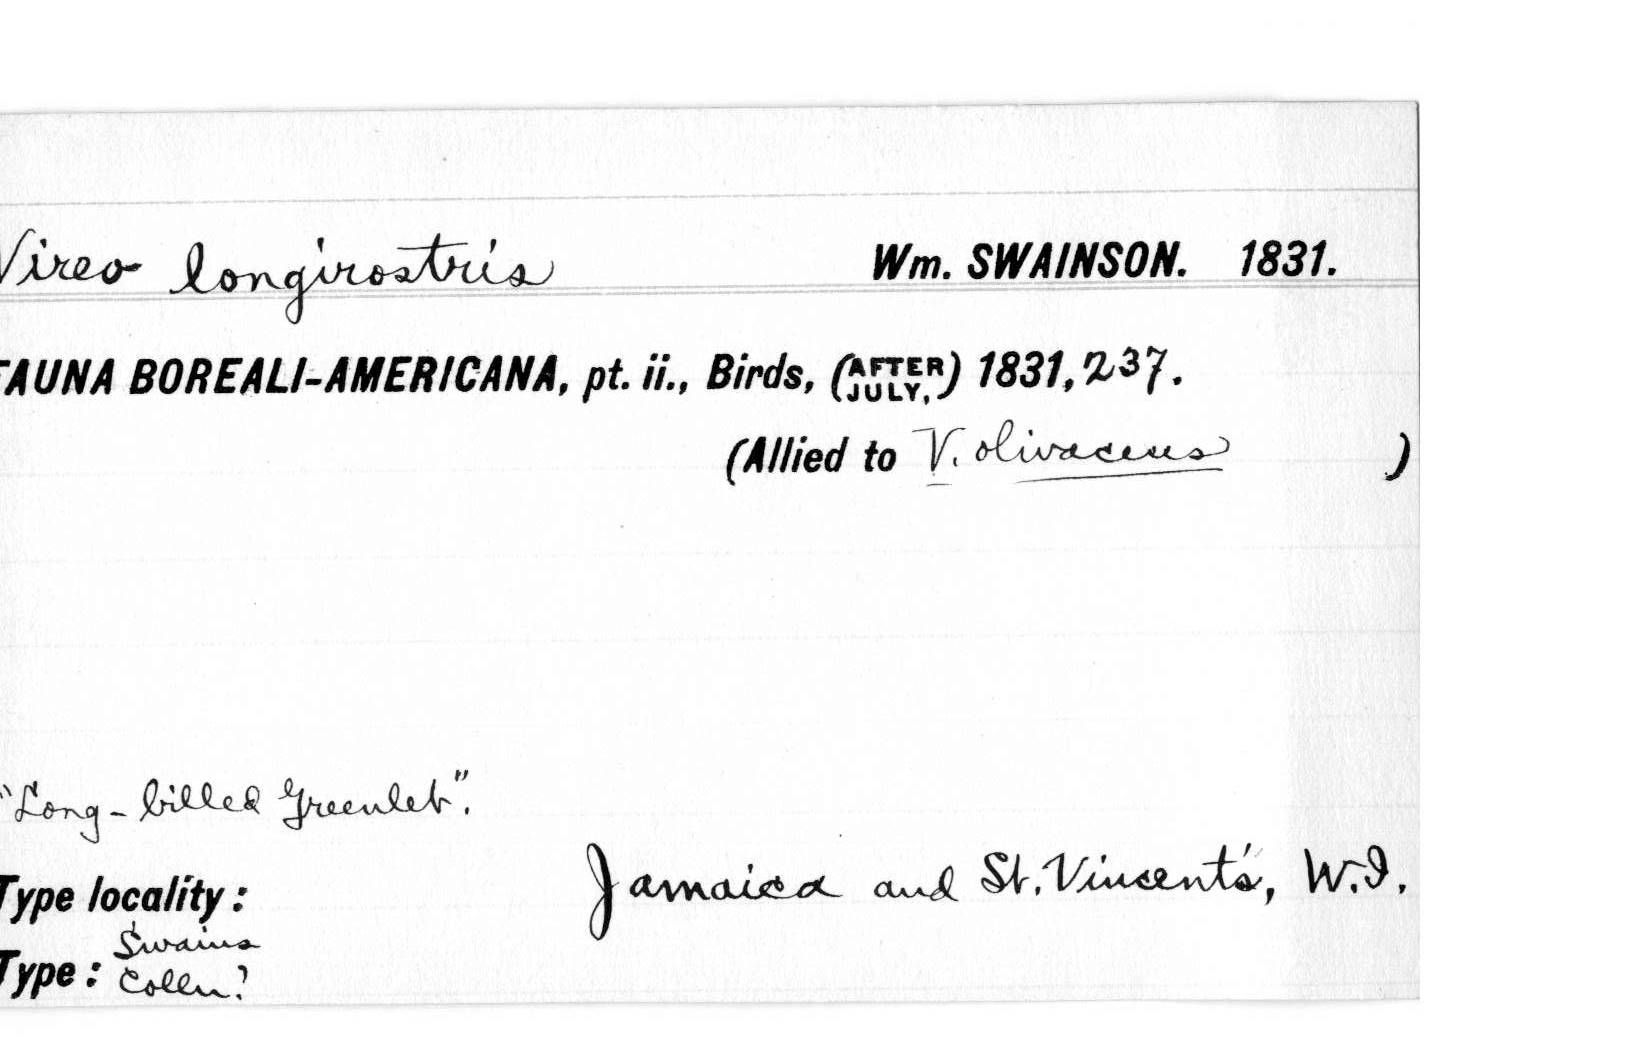 Vireo longirostris Wm. SWAINSON. 1831.
FAUNA BOREALI-AMERICANA, pt. ii., Birds, (AFTER JULY,) 1831, 237.
(Allied to V. olivaceus )
"Long-billed Greenlet".
Type locality: Jamaica and St. Vincent's, W.I.
Type: Swains Colln?